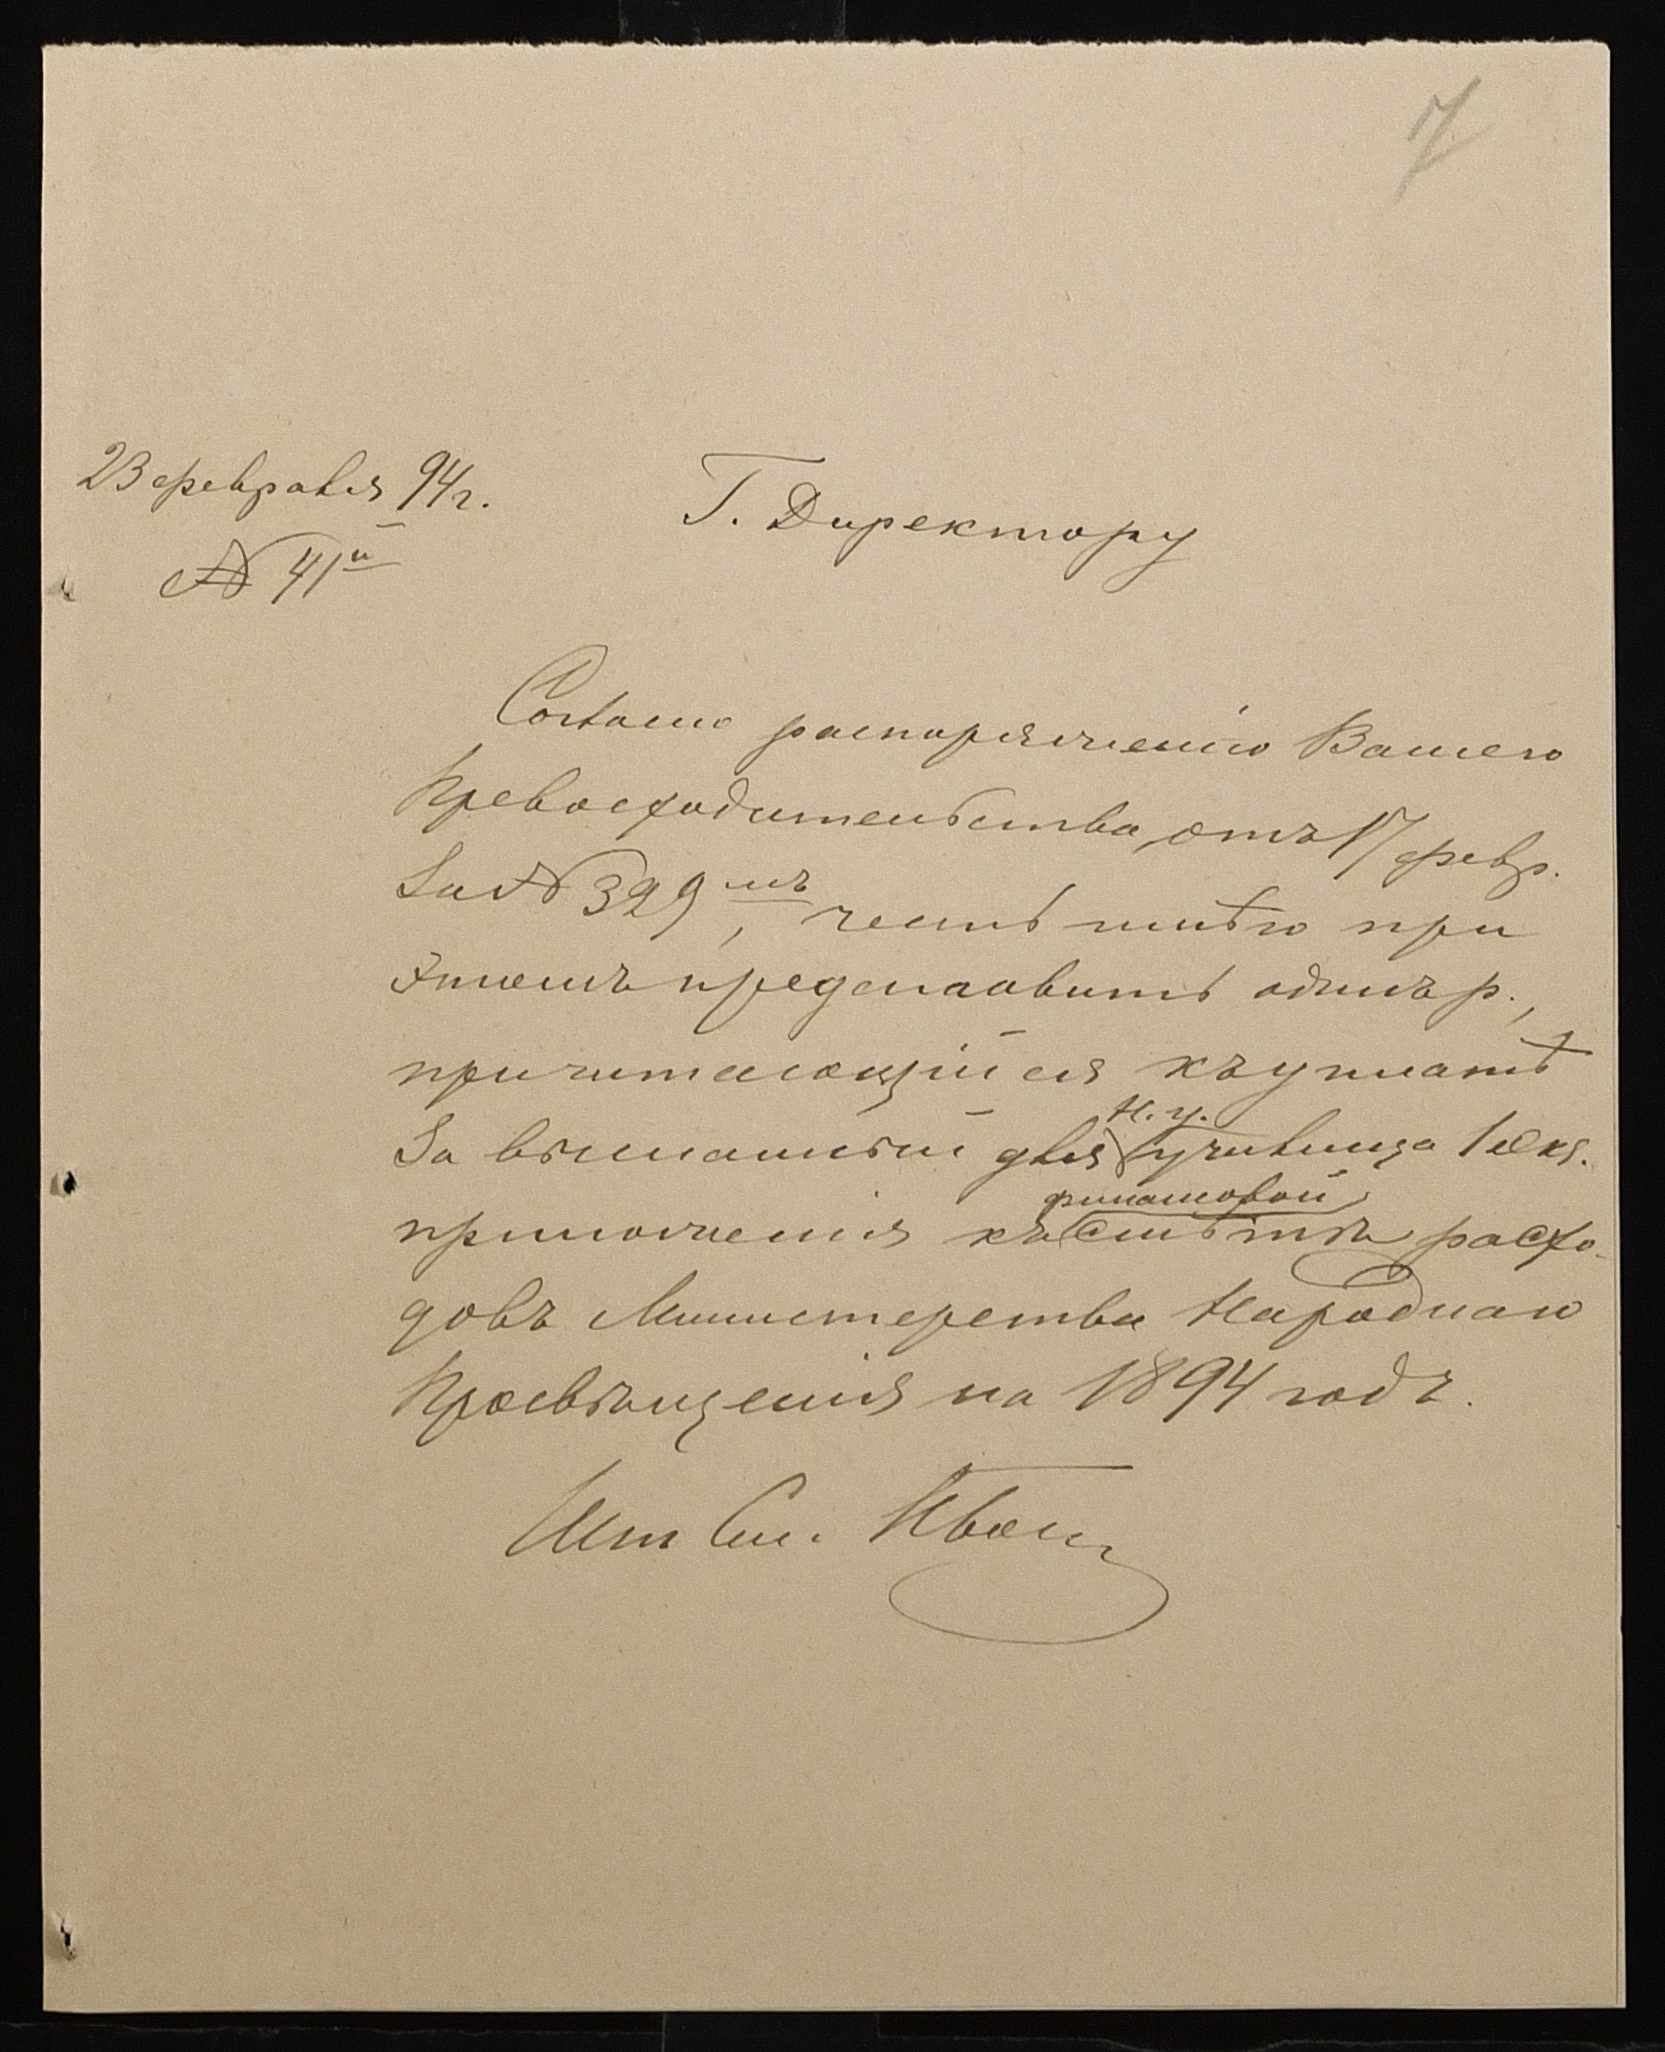 7
23 февраля 94 г.
№ 41й
Г. Директору
Согласно распоряженію Вашего
Превосходительства, отъ 17 февр.
за № 329мъ, честь имѣю при
этомъ представить одинъ р.,
причитающійся къ уплатѣ
за высланный для н. у. училища 1 экз.
приложенія къ финансовой смѣтѣ расхо-
довъ Министерства Народнаго
Просвѣщенія на 1894 годъ.
Шт См.